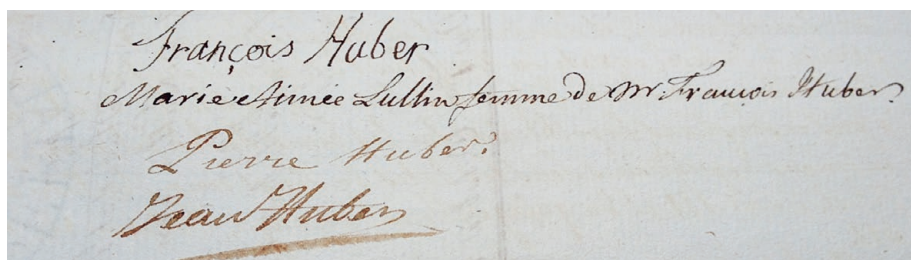 François Huber
Marie Aimée Lullin femme de Mr François Huber.
Pierre Huber.
Jean Huber